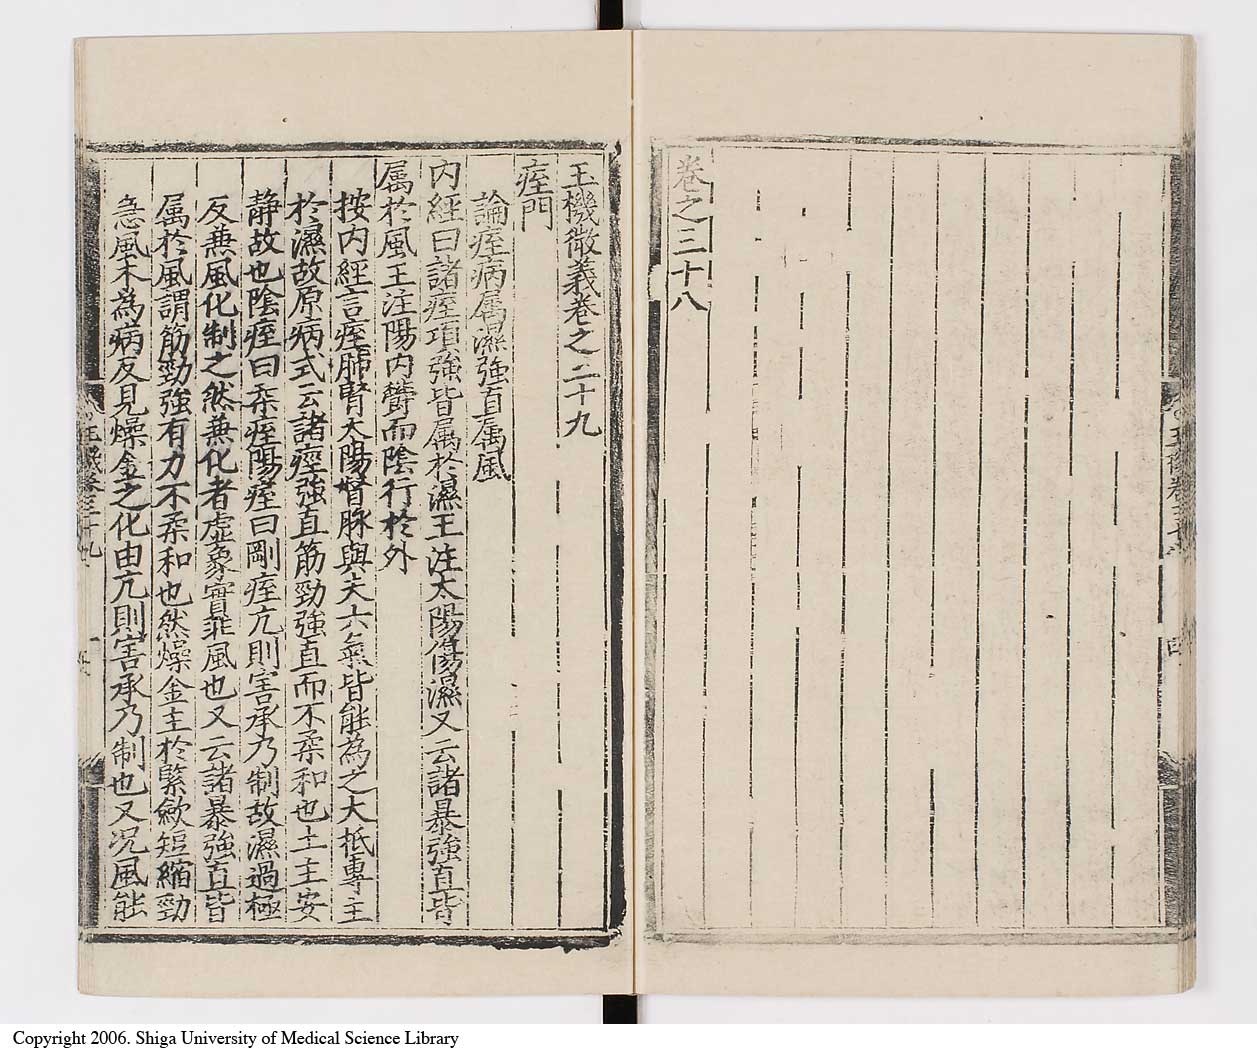 卷之三十八
玉機微義卷之三十九
痓門
論痓病属濕強直属風
内經曰諸痓項強皆属於濕王注太陽傷濕又云諸暴強直皆
属於風王注陽内欝而隂行於外
按内經言痓肺腎太陽督脉與夫六氣皆能為之大抵專主
於濕故原病式云諸痓強直筋勁強直而不柔和也土主安
静故也隂痓曰柔痓陽痓曰剛痓亢則害承乃制故濕過極
反兼風化制之然兼化者虚象實非風也又云諸暴強直皆
属於風謂筋勁強有力不柔和也然燥金主於緊歛短縮勁
急風木為病反見燥金之化由亢則害承乃制也又况風能
玉機卷三十九
Copyright 2006. Shiga University of Medical Science Library